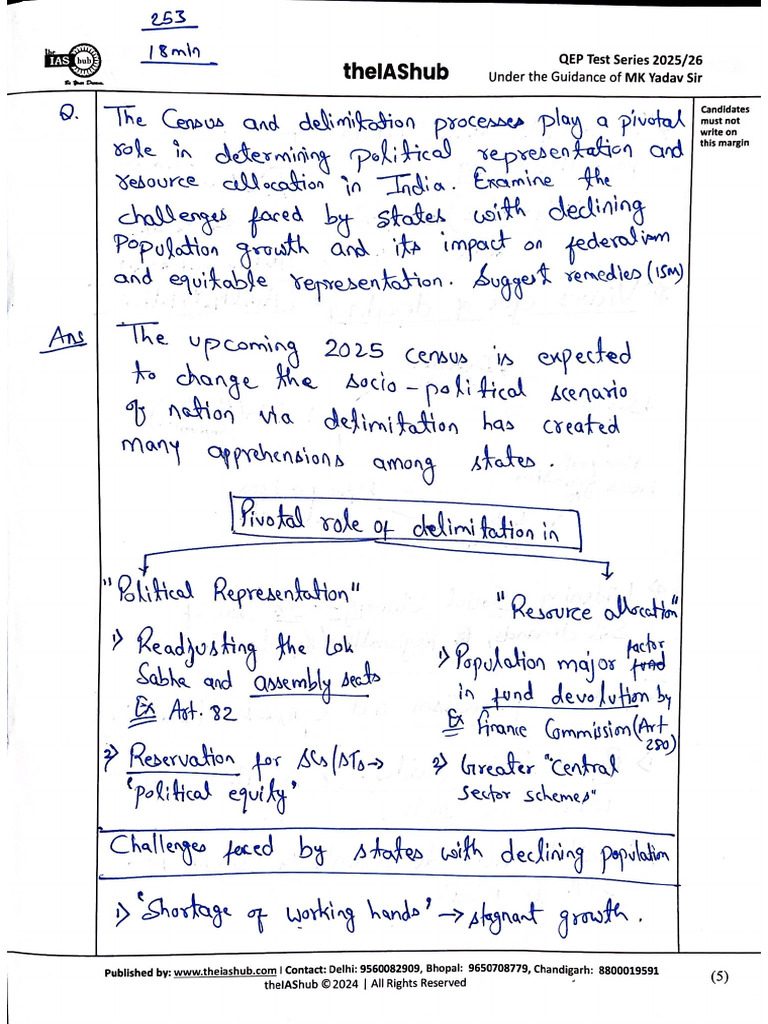 253
18 min
the
IAS hub
Be Your Dream
theIAShub
QEP Test Series 2025/26
Under the Guidance of MK Yadav Sir
Candidates
must not
write on
this margin
Q. The Census and delimitation processes play a pivotal
role in determining political representation and
resource allocation in India. Examine the
challenges faced by states with declining
Population growth and its impact on federalism
and equitable representation. Suggest remedies (15M)
Ans The upcoming 2025 census is expected
to change the socio-political scenario
of nation via delimitation has created
many apprehensions among states.
Pivotal role of delimitation in
"Political Representation"
1) Readjusting the Lok
Sabha and assembly seats
Ex Art. 82
2) Reservation for SCs/STs →
'political equity'
"Resource allocation"
1) Population major factor fund
in fund devolution by
Ex Finance Commission (Art
280)
2) Greater "Central
sector schemes"
Challenges faced by states with declining population
1) 'Shortage of working hands' → stagnant growth.
Published by: www.theiashub.com | Contact: Delhi: 9560082909, Bhopal: 9650708779, Chandigarh: 8800019591
theIAShub © 2024 | All Rights Reserved
(5)